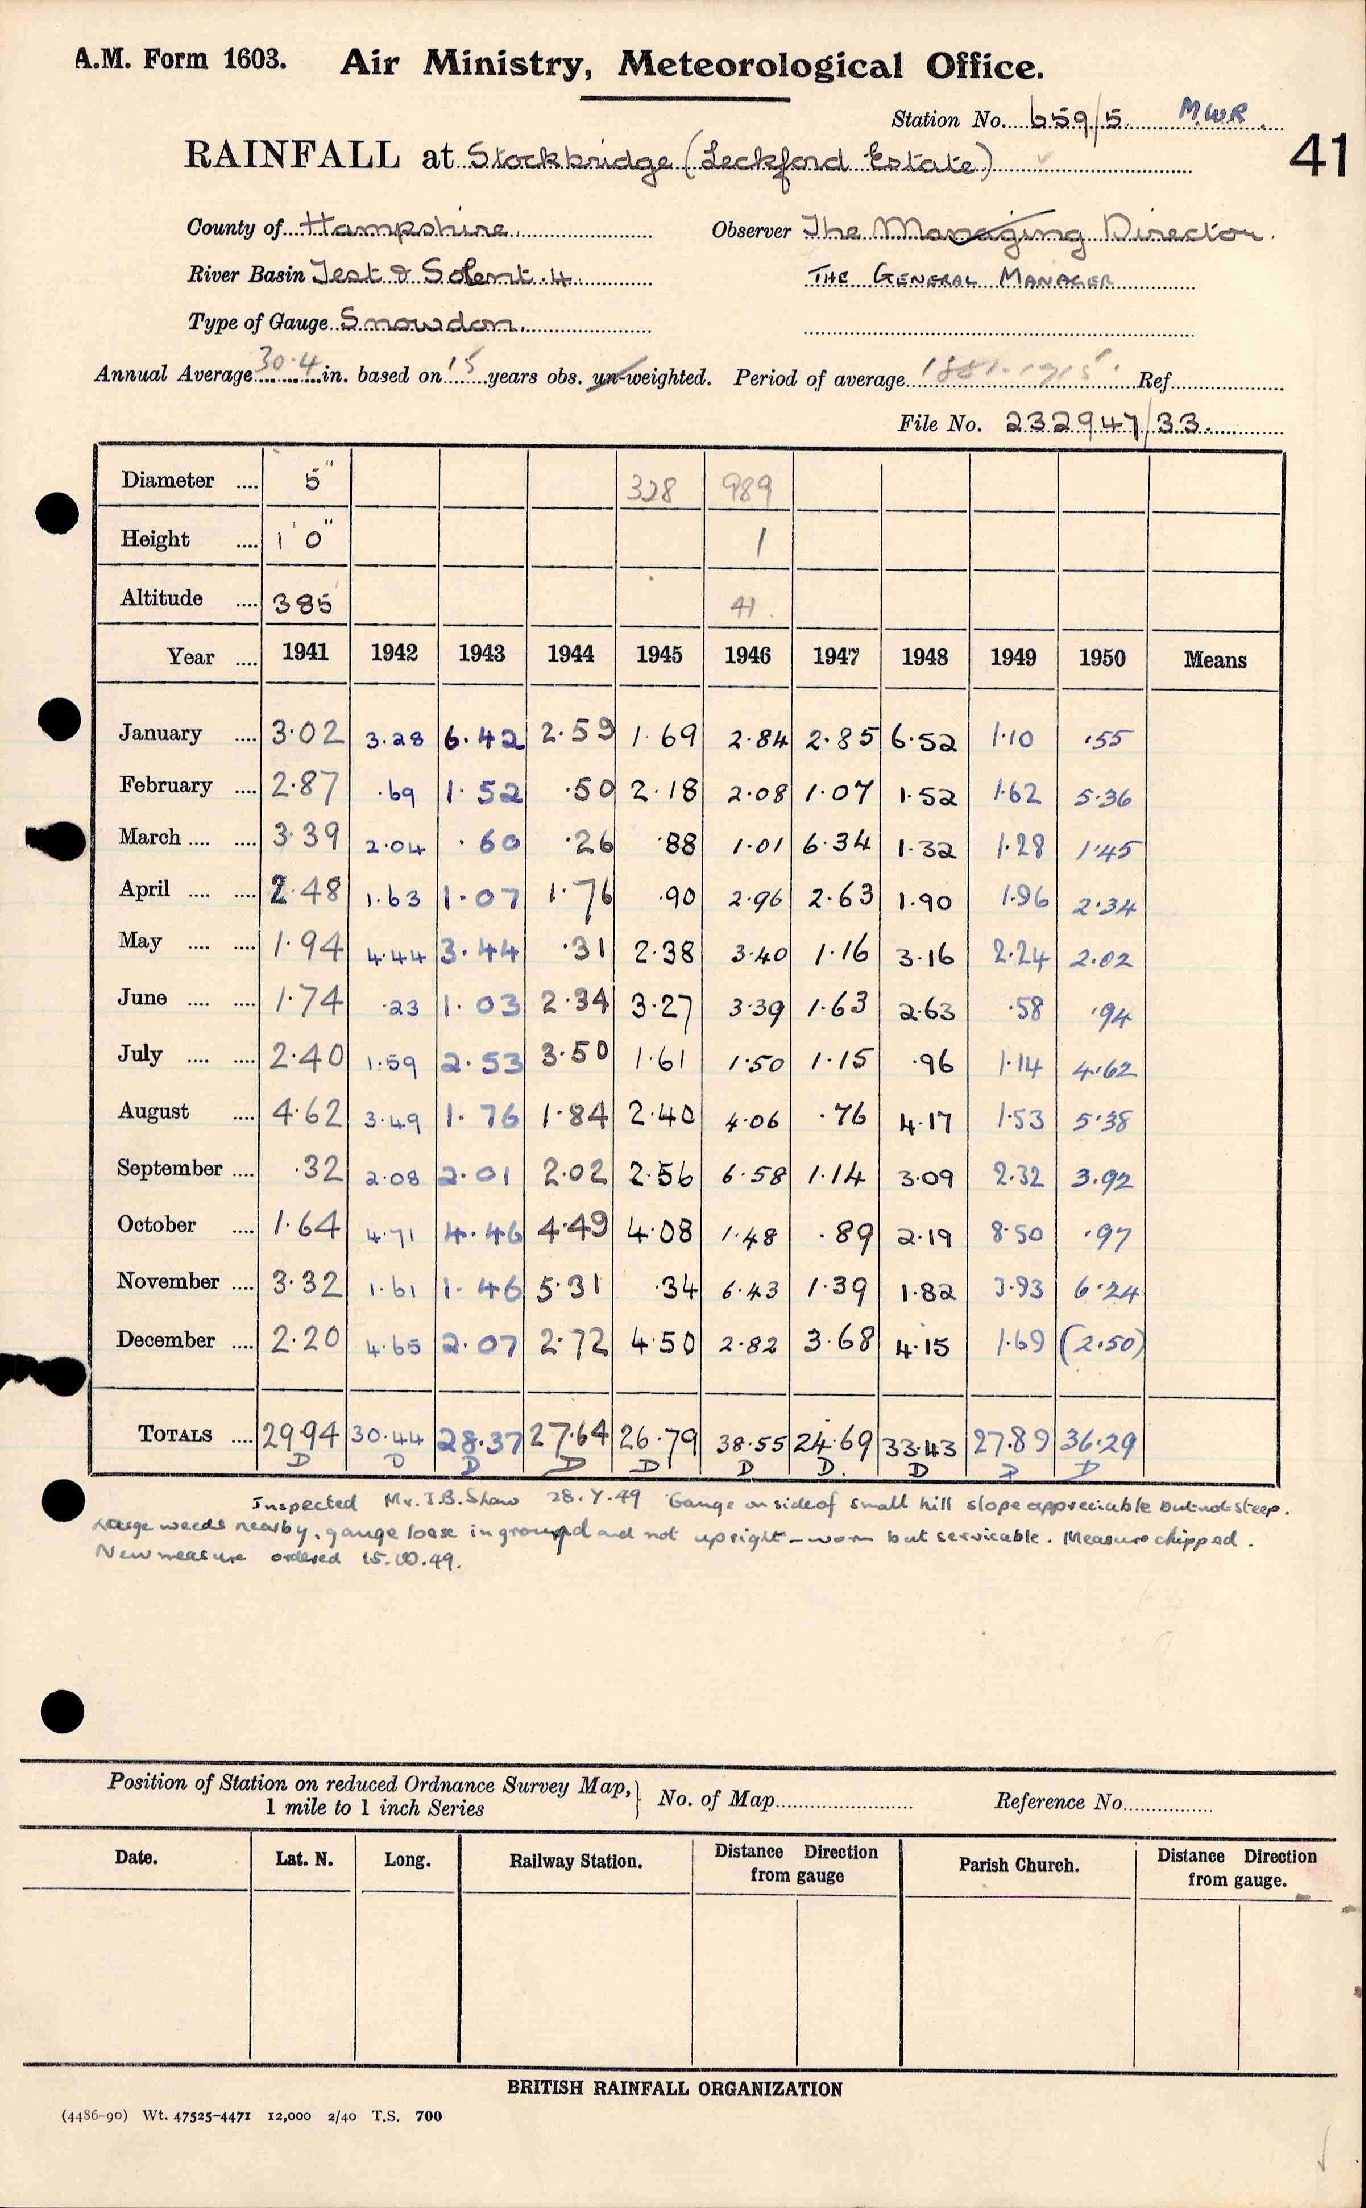 A.M. Form 1603. Air Ministry, Meteorological Office.
Station No. 659/5 M.W.R.
RAINFALL at Stockbridge (Leckford Estate)
41
County of Hampshire. Observer The Managing Director.
River Basin Test & Solent. 4. THE GENERAL MANAGER
Type of Gauge Snowdon.
Annual Average 30.4 in. based on 15 years obs. un-weighted. Period of average 1881-1915. Ref.
File No. 232947/33.
Diameter .... 5" 328 989
Height .... 1' 0" 1
Altitude .... 385 41
Year .... 1941 1942 1943 1944 1945 1946 1947 1948 1949 1950 Means
January .... 3.02 3.28 6.42 2.59 1.69 2.84 2.85 6.52 1.10 .55
February .... 2.87 .69 1.52 .50 2.18 2.08 1.07 1.52 1.62 5.36
March .... .... 3.39 2.04 .60 .26 .88 1.01 6.34 1.32 1.28 1.45
April .... .... 2.48 1.63 1.07 1.76 .90 2.96 2.63 1.90 1.96 2.34
May .... .... 1.94 4.44 3.44 .31 2.38 3.40 1.16 3.16 2.24 2.02
June .... .... 1.74 .23 1.03 2.34 3.27 3.39 1.63 2.63 .58 .94
July .... .... 2.40 1.59 2.53 3.50 1.61 1.50 1.15 .96 1.14 4.62
August .... 4.62 3.49 1.76 1.84 2.40 4.06 .76 4.17 1.53 5.38
September .... .32 2.08 2.01 2.02 2.56 6.58 1.14 3.09 2.32 3.92
October .... 1.64 4.71 4.46 4.49 4.08 1.48 .89 2.19 8.50 .97
November .... 3.32 1.61 1.46 5.31 .34 6.43 1.39 1.82 3.93 6.24
December .... 2.20 4.65 2.07 2.72 4.50 2.82 3.68 4.15 1.69 (2.50)
TOTALS .... 29.94 30.44 28.37 27.64 26.79 38.55 24.69 33.43 27.89 36.29
D D D D D D D. D D D
Inspected Mr. J.B. Shaw 28.7.49 Gauge on side of small hill slope appreciable but not steep.
Large weeds nearby. gauge loose in ground and not upright - worn but servicable. Measure chipped.
New measure ordered 15.10.49.
Position of Station on reduced Ordnance Survey Map, 1 mile to 1 inch Series } No. of Map Reference No.
Date. Lat. N. Long. Railway Station. Distance Direction from gauge Parish Church. Distance Direction from gauge.
BRITISH RAINFALL ORGANIZATION
(4486-90) Wt. 47525-4471 12,000 2/40 T.S. 700